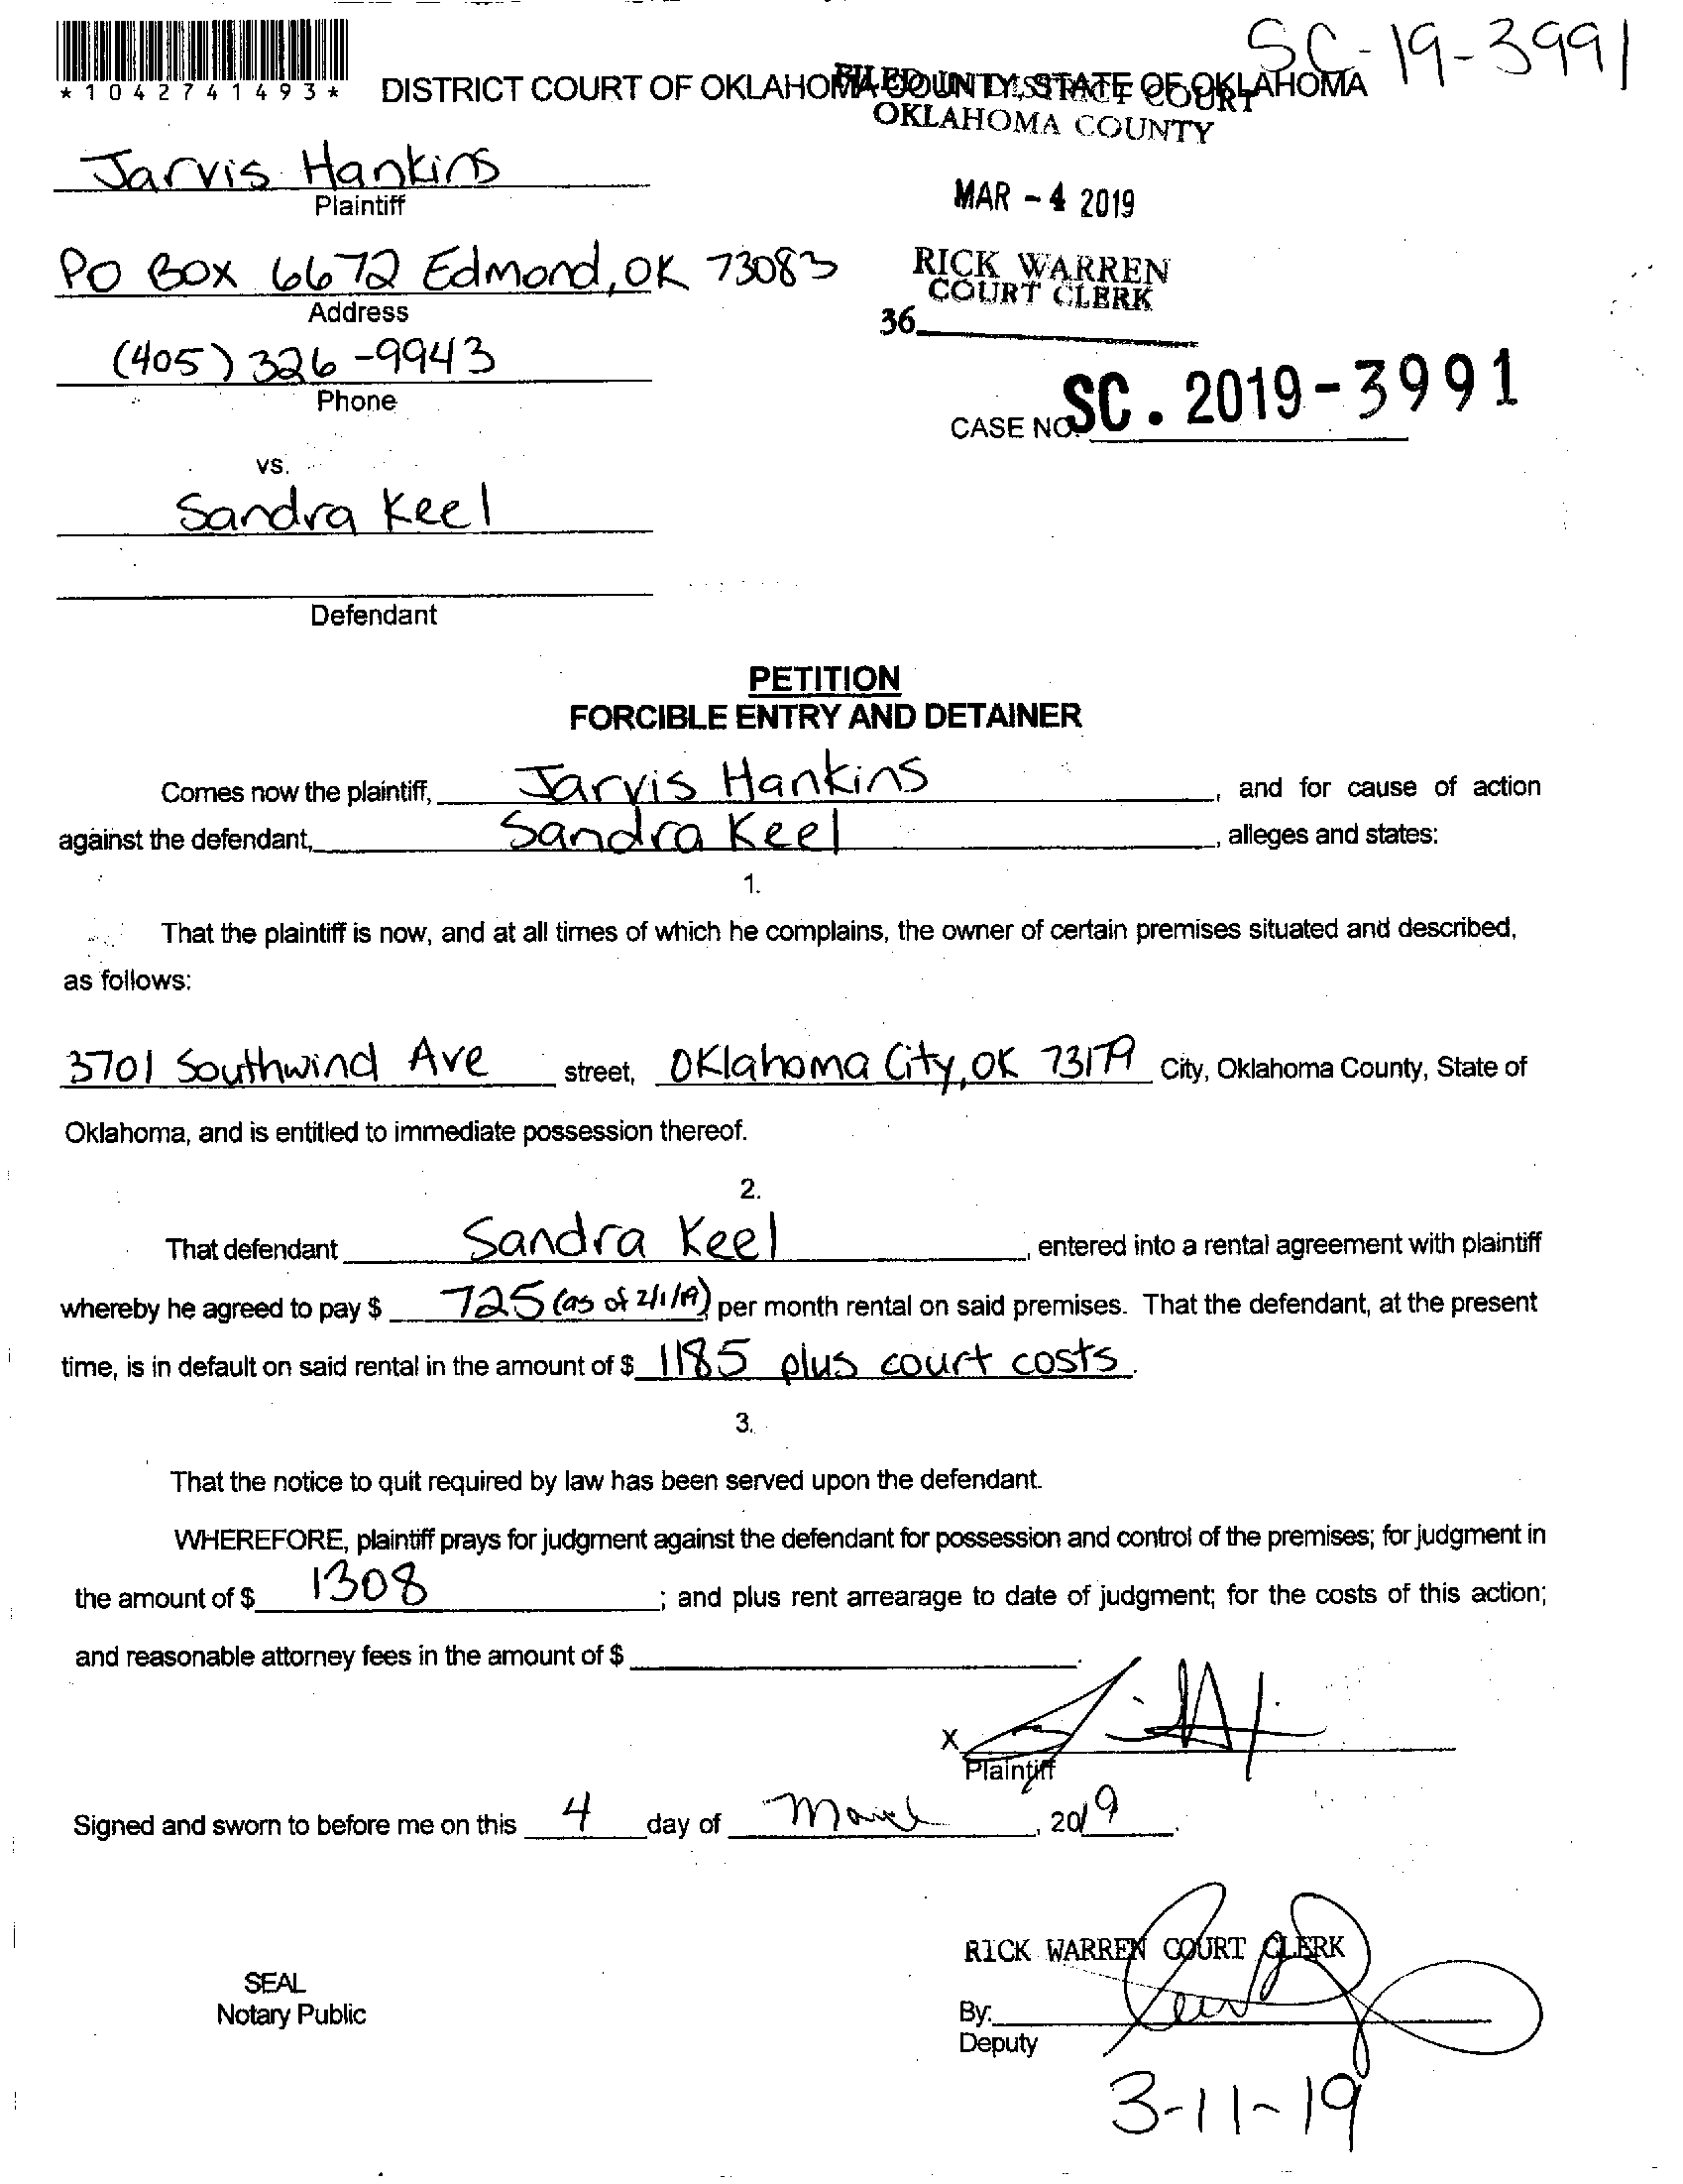 SC-19-3991
*1042741493*
DISTRICT COURT OF OKLAHOMA COUNTY, STATE OF OKLAHOMA
FILED IN DISTRICT COURT
OKLAHOMA COUNTY
Jarvis Hankins
Plaintiff
MAR - 4 2019
PO Box 6672 Edmond, OK 73083
Address
RICK WARREN
COURT CLERK
36
(405) 326-9943
Phone
CASE NO. SC. 2019-3991
vs.
Sandra Keel
Defendant
PETITION
FORCIBLE ENTRY AND DETAINER
Comes now the plaintiff, Jarvis Hankins, and for cause of action
against the defendant, Sandra Keel, alleges and states:
1.
That the plaintiff is now, and at all times of which he complains, the owner of certain premises situated and described,
as follows:
3701 Southwind Ave street, Oklahoma City, OK 73179 City, Oklahoma County, State of
Oklahoma, and is entitled to immediate possession thereof.
2.
That defendant Sandra Keel, entered into a rental agreement with plaintiff
whereby he agreed to pay $ 725 (as of 2/1/19) per month rental on said premises. That the defendant, at the present
time, is in default on said rental in the amount of $ 1185 plus court costs.
3.
That the notice to quit required by law has been served upon the defendant.
WHEREFORE, plaintiff prays for judgment against the defendant for possession and control of the premises; for judgment in
the amount of $ 1308; and plus rent arrearage to date of judgment; for the costs of this action;
and reasonable attorney fees in the amount of $ .
X
Plaintiff
Signed and sworn to before me on this 4 day of March, 2019.
RICK WARREN COURT CLERK
SEAL
Notary Public
By:
Deputy
3-11-19